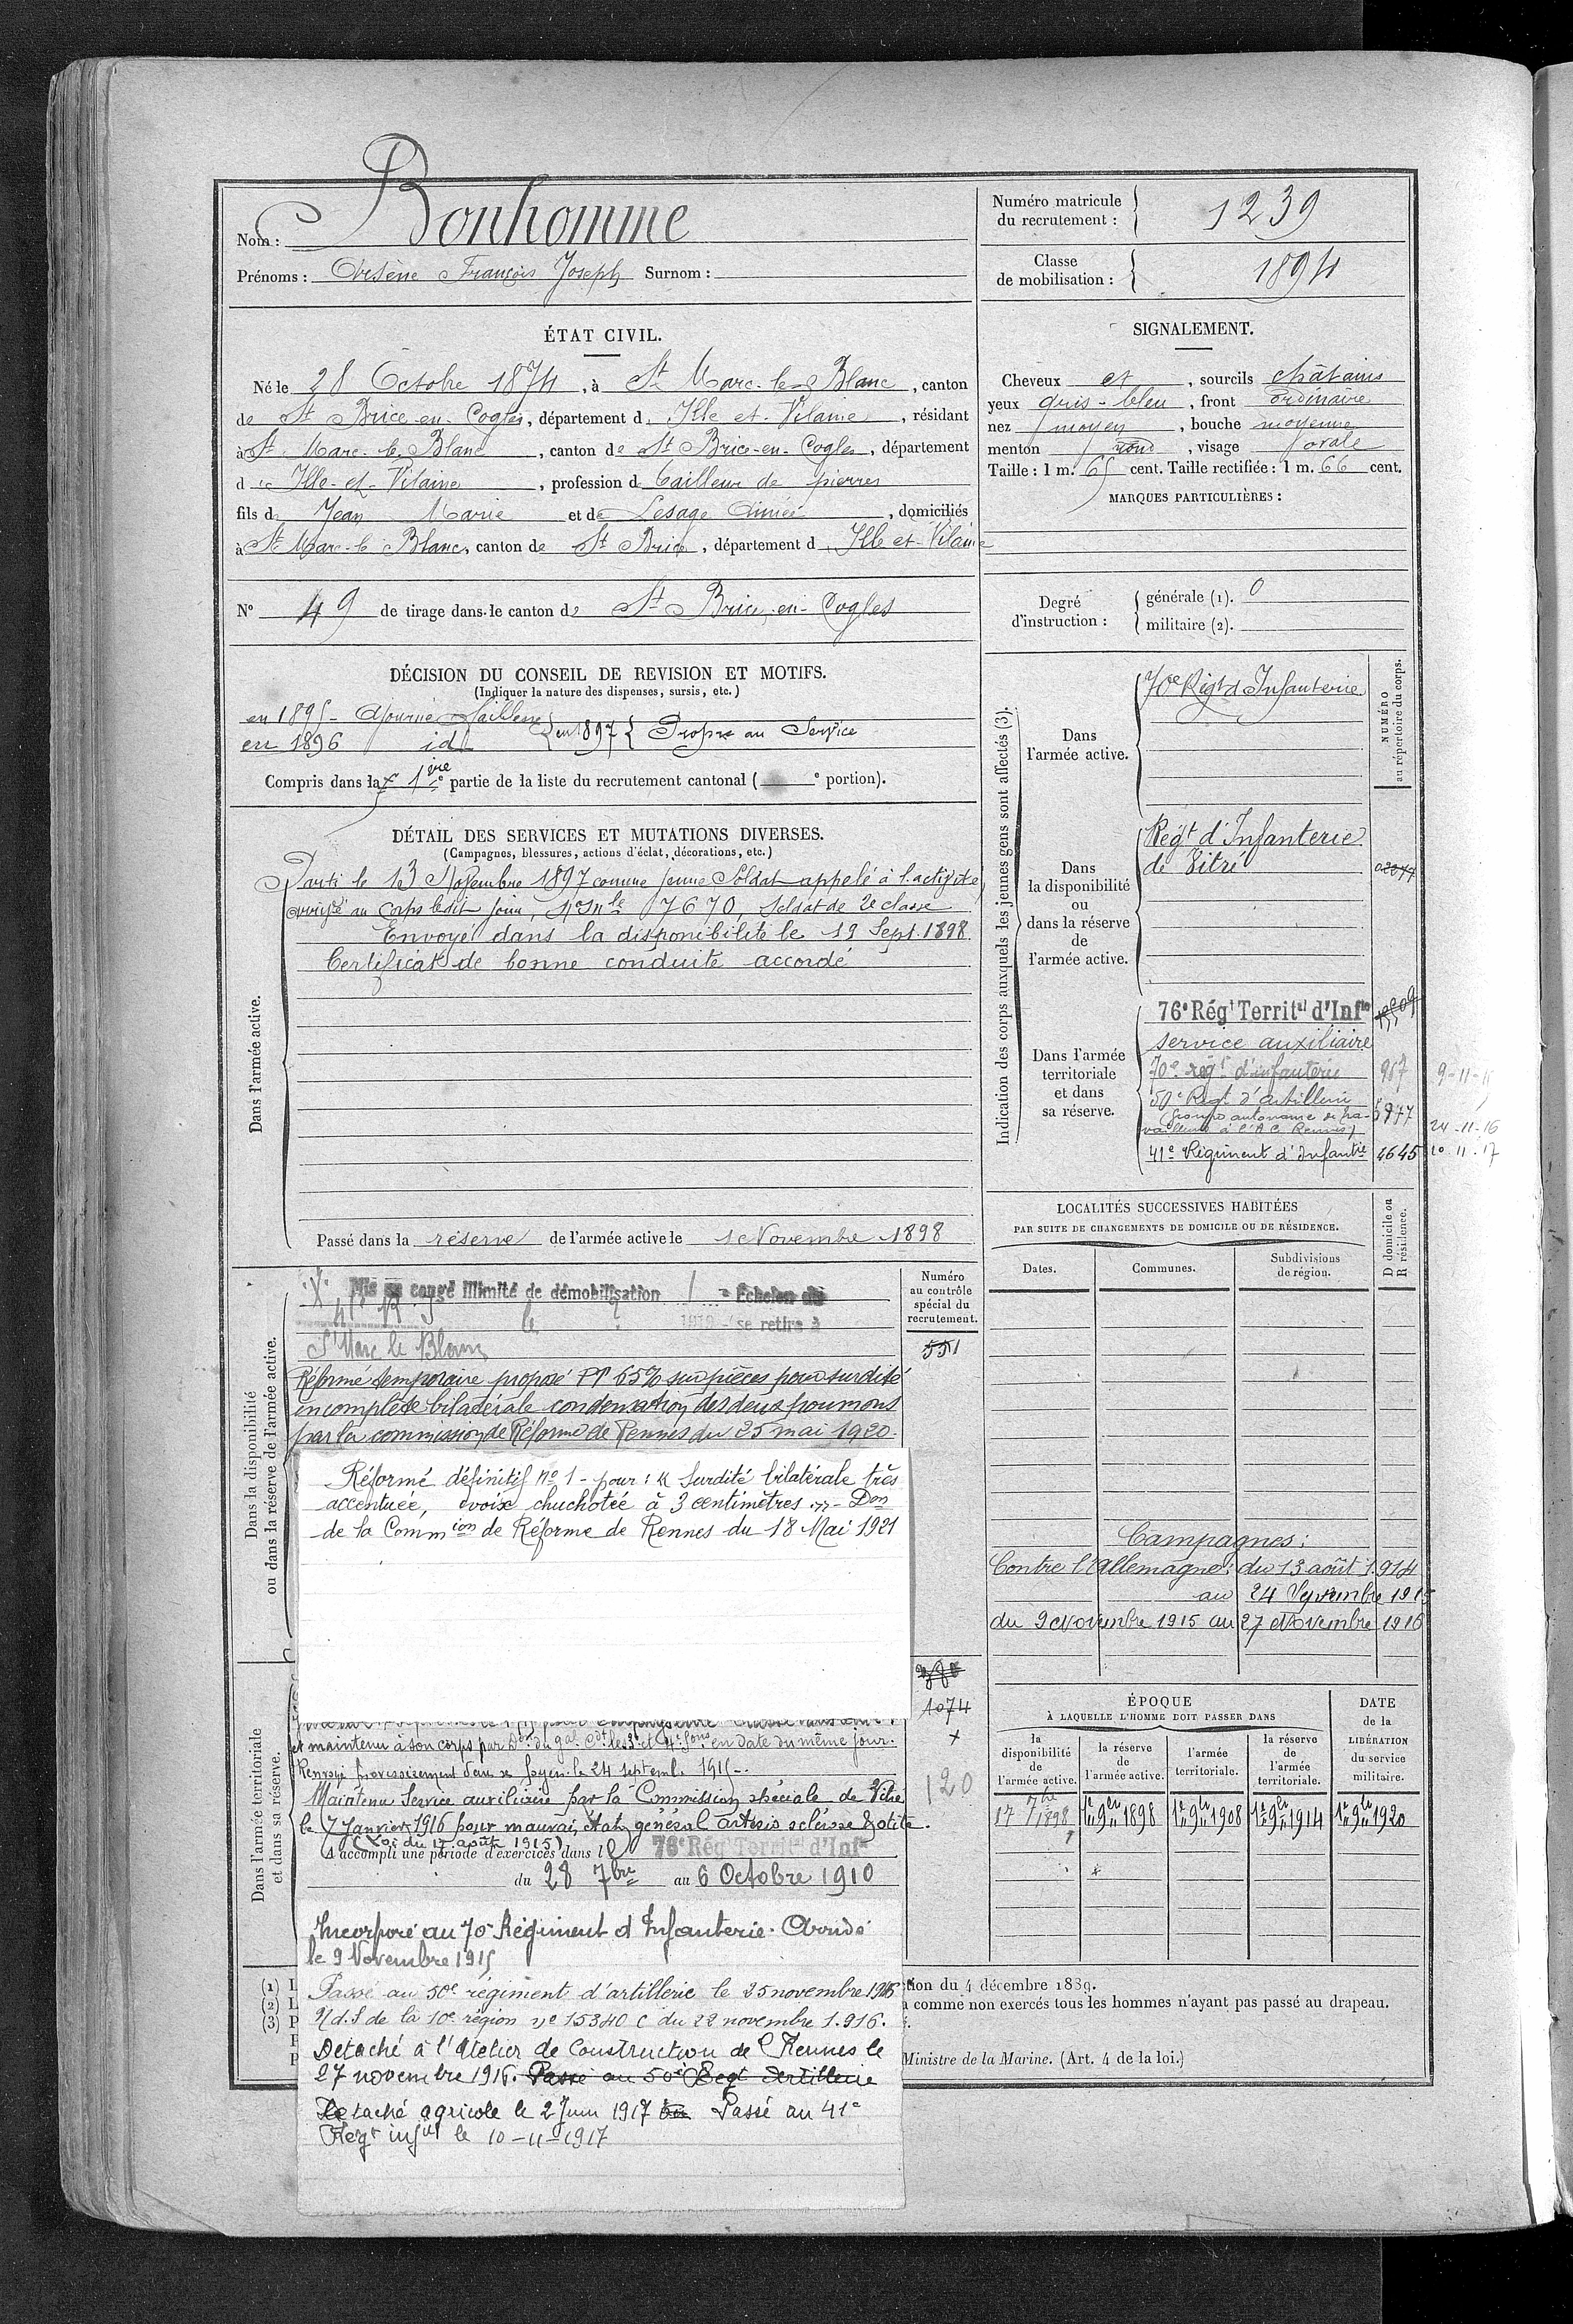 Nom : Bonhomme
Prénoms : Arsène François Joseph Surnom :
Numéro matricule du recrutement : 1239
Classe de mobilisation : 1894
ÉTAT CIVIL.
Né le 28 Octobre 1874, à St Marc-le-Blanc, canton
de St Brice-en-Cogles, département d Ille-et-Vilaine, résidant
à St Marc-le-Blanc, canton de St Brice-en-Cogles, département
d Ille-et-Vilaine, profession d tailleur de pierres
fils de Jean Marie et de Lesage Aimée, domiciliés
à St Marc-le Blanc, canton de St Brice, département d Ille et-Vilaine
N° 49 de tirage dans le canton de St Brice-en-Cogles
SIGNALEMENT.
Cheveux et, sourcils châtains
yeux gris-bleu, front ordinaire
nez moyen, bouche moyenne
menton rond, visage ovale
Taille : 1 m. 65 cent. Taille rectifiée : 1 m. 66 cent.
MARQUES PARTICULIÈRES :
Degré d'instruction :
générale (1). 0
militaire (2).
DÉCISION DU CONSEIL DE REVISION ET MOTIFS.
(Indiquer la nature des dispenses, sursis, etc.)
en 1895 - Ajourné faiblesse
en 1896 id
en 1897 Propre au Service
Compris dans la 1ère partie de la liste du recrutement cantonal ( e portion).
DÉTAIL DES SERVICES ET MUTATIONS DIVERSES.
(Campagnes, blessures, actions d'éclat, décorations, etc.)
Dans l'armée active.
Parti le 13 Novembre 1897 comme jeune Soldat appelé à l'activité
arrivé au Corps ledit jour, No Mle 7670, Soldat de 2e classe
Envoyé dans la disponibilité le 19 Sept. 1898.
Certificat de bonne conduite accordé
Passé dans la réserve de l'armée active le 1 Novembre 1898
Indication des corps auxquels les jeunes gens sont affectés (3).
NUMÉRO au répertoire du corps.
Dans l'armée active.
70e Régt d'Infanterie
Dans la disponibilité ou dans la réserve de l'armée active.
Régt d'Infanterie
de Vitré
Dans l'armée territoriale et dans sa réserve.
76e Régt Territal d'Infie
service auxiliaire
70e régt d'infanterie 967 9-11-15
50e Régt d'artillerie 5977
(Groupe autonome de tra-
vailleurs à l'A C Rennes) 24-11-16
41e Régiment d'Infantie 4645 10-11-17
LOCALITÉS SUCCESSIVES HABITÉES
PAR SUITE DE CHANGEMENTS DE DOMICILE OU DE RÉSIDENCE.
D domicile ou R résidence.
Dates. Communes. Subdivisions de région.
Campagnes :
Contre l'Allemagne : du 13 août 1914
au 24 Septembre 1915
du 9 Novembre 1915 au 27 Novembre 1916
Dans la disponibilité ou dans la réserve de l'armée active.
Numéro au contrôle spécial du recrutement.
551
Mis en congé illimité de démobilisation Echelon
41e R I le 1919 se retire à
St Marc le Blanc
Réformé temporaire proposé PT 65% sur pièces pour surdité
incomplète bilatérale condensation des deux poumons
par la commission de Réforme de Rennes du 25 mai 1920.
Réformé définitif no 1 - pour : « Surdité bilatérale très
accentuée, voix chuchotée à 3 centimètres » - Don
de la Commion de Réforme de Rennes du 18 Mai 1921
Dans l'armée territoriale et dans sa réserve.
1074
120
et maintenu à son corps par Don du gal Cdt les 3e et 4e Sons en date du même jour.
Renvoyé provisoirement dans ses foyers le 24 septemb. 1915.
Maintenu Service auxiliaire par la Commission spéciale de Vitré
le 7 janvier 1916 pour mauvais état général artério sclérose & otite.
(Loi du 17 août 1915)
A accompli une période d'exercices dans le 76e Régt Territal d'Infie
du 28 7bre au 6 Octobre 1910
Incorporé au 70e Régiment d'Infanterie. Arrivé
le 9 Novembre 1915
Passé au 50e régiment d'artillerie le 25 novembre 1916
N.d.S de la 10e région no 15340 C du 22 novembre 1.916.
Detaché à l'Atelier de Construction de Rennes le
27 novembre 1916. Passé au 50e Regt Artillerie
Detaché agricole le 2 Juin 1917 Passé au 41e
Régt infie le 10-11-1917
ÉPOQUE
À LAQUELLE L'HOMME DOIT PASSER DANS
DATE de la LIBÉRATION du service militaire.
la disponibilité de l'armée active. la réserve de l'armée active. l'armée territoriale. la réserve de l'armée territoriale.
17 7bre 1898 1er 9bre 1898 1er 9bre 1908 1er 9bre 1914 1er 9bre 1920
(1) L
(2) L
(3) P
tion du 4 décembre 1889.
a comme non exercés tous les hommes n'ayant pas passé au drapeau.
Ministre de la Marine. (Art. 4 de la loi.)